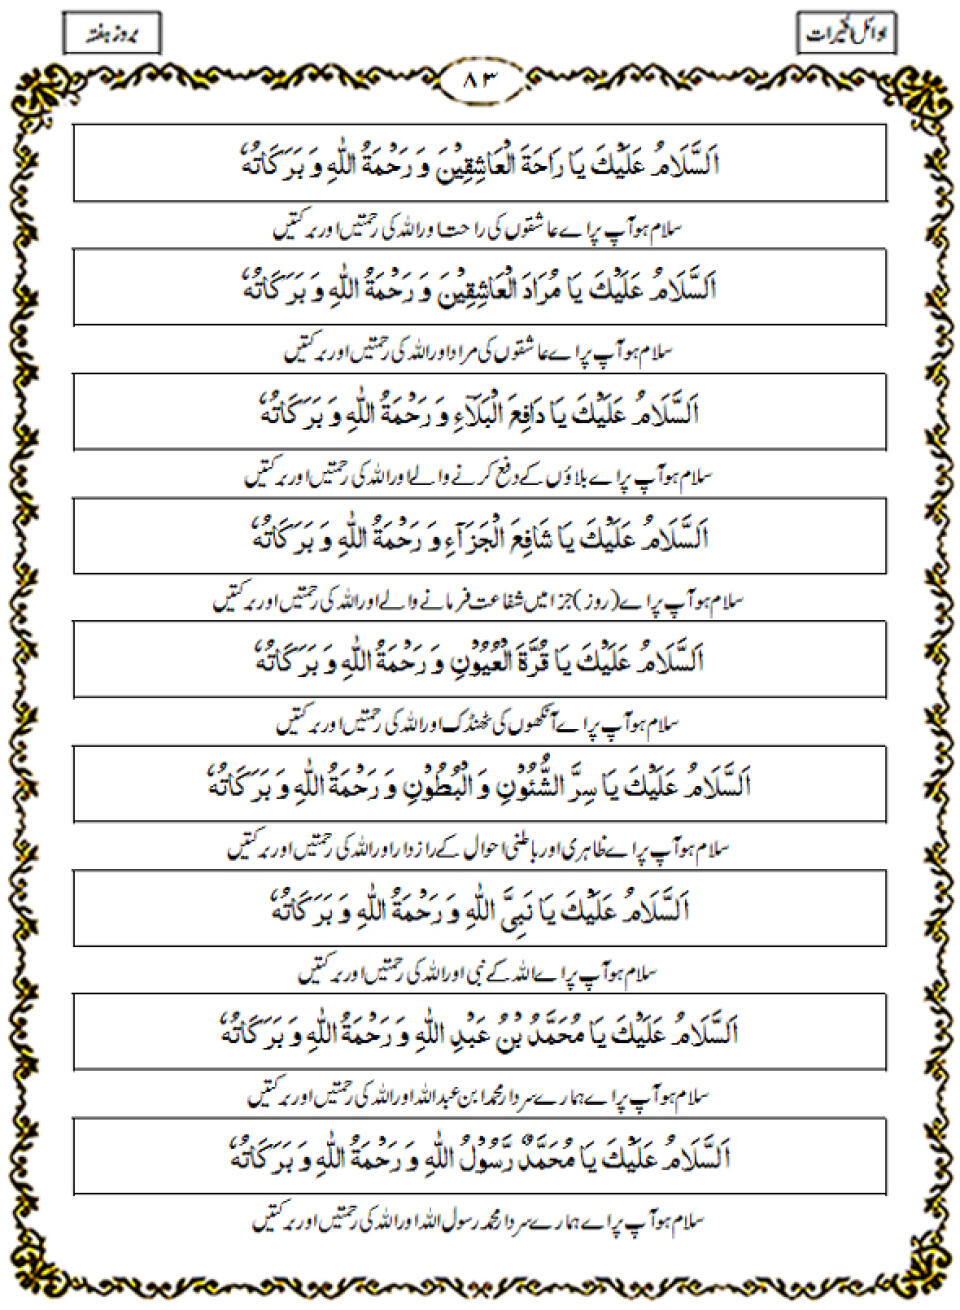 اوائل الخیرات
بروز ہفتہ
۸۳
اَلسَّلَامُ عَلَيْكَ يَا رَاحَةَ الْعَاشِقِيْنَ وَ رَحْمَةُ اللهِ وَ بَرَكَاتُهٗ
سلام ہو آپ پر اے عاشقوں کی راحت اور اللہ کی رحمتیں اور برکتیں
اَلسَّلَامُ عَلَيْكَ يَا مُرَادَ الْعَاشِقِيْنَ وَ رَحْمَةُ اللهِ وَ بَرَكَاتُهٗ
سلام ہو آپ پر اے عاشقوں کی مراد اور اللہ کی رحمتیں اور برکتیں
اَلسَّلَامُ عَلَيْكَ يَا دَافِعَ الْبَلَآءِ وَ رَحْمَةُ اللهِ وَ بَرَكَاتُهٗ
سلام ہو آپ پر اے بلاؤں کے دفع کرنے والے اور اللہ کی رحمتیں اور برکتیں
اَلسَّلَامُ عَلَيْكَ يَا شَافِعَ الْجَزَآءِ وَ رَحْمَةُ اللهِ وَ بَرَكَاتُهٗ
سلام ہو آپ پر اے (روز) جزا میں شفاعت فرمانے والے اور اللہ کی رحمتیں اور برکتیں
اَلسَّلَامُ عَلَيْكَ يَا قُرَّةَ الْعُيُوْنِ وَ رَحْمَةُ اللهِ وَ بَرَكَاتُهٗ
سلام ہو آپ پر اے آنکھوں کی ٹھنڈک اور اللہ کی رحمتیں اور برکتیں
اَلسَّلَامُ عَلَيْكَ يَا سِرَّ الشُّئُوْنِ وَ الْبُطُوْنِ وَ رَحْمَةُ اللهِ وَ بَرَكَاتُهٗ
سلام ہو آپ پر اے ظاہری اور باطنی احوال کے راز دار اور اللہ کی رحمتیں اور برکتیں
اَلسَّلَامُ عَلَيْكَ يَا نَبِىَّ اللهِ وَ رَحْمَةُ اللهِ وَ بَرَكَاتُهٗ
سلام ہو آپ پر اے اللہ کے نبی اور اللہ کی رحمتیں اور برکتیں
اَلسَّلَامُ عَلَيْكَ يَا مُحَمَّدُ بْنُ عَبْدِ اللهِ وَ رَحْمَةُ اللهِ وَ بَرَكَاتُهٗ
سلام ہو آپ پر اے ہمارے سردار محمد ابن عبداللہ اور اللہ کی رحمتیں اور برکتیں
اَلسَّلَامُ عَلَيْكَ يَا مُحَمَّدٌ رَّسُوْلُ اللهِ وَ رَحْمَةُ اللهِ وَ بَرَكَاتُهٗ
سلام ہو آپ پر اے ہمارے سردار محمد رسول اللہ اور اللہ کی رحمتیں اور برکتیں